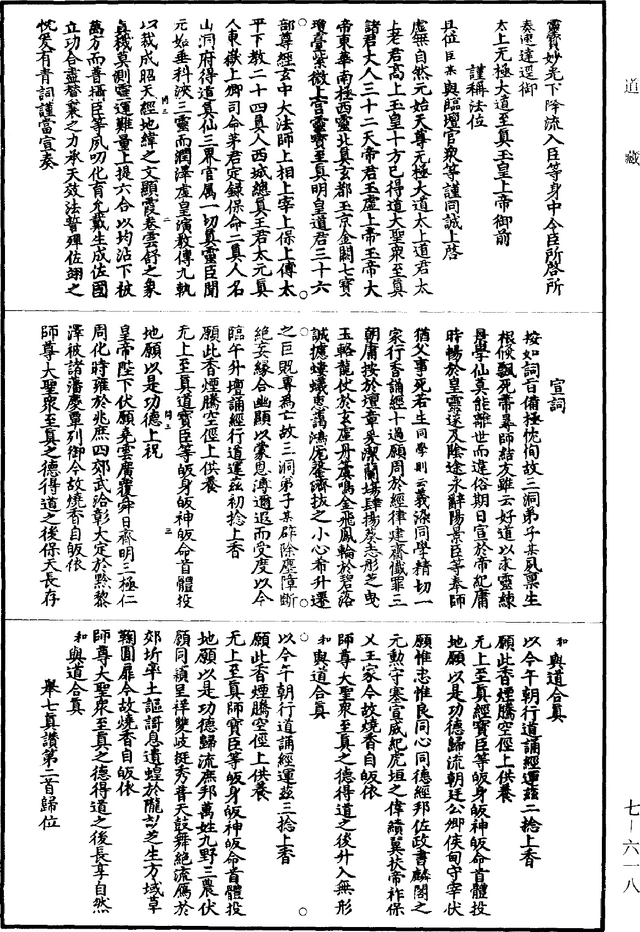 道藏
靈寶妙光下降流入臣等身中令臣所啓所
奏速達逕御
太上无極大道至真玉皇上帝御前
謹稱法位
具位臣某與臨壇官衆等謹同誠上啓
虛无自然元始天尊无極大道太上道君太
上老君高上玉皇十方已得道大聖衆至真
諸君丈人三十二天帝君玉虛上帝玉帝大
帝東華南極西靈北真玄都玉京金闕七寶
瓊臺紫微上宮靈寶至真明皇道君三十六
部尊經玄中大法師上相上宰上保上傅太
平下教二十四真人西城總真王君太元真
人東嶽上卿司命茅君定録保命二真人名
山洞府得道真仙三界官屬一切真靈臣聞
元始垂科浹三靈而潤澤虛皇演教傳九執
以裁成昭天經地緯之文顯霞卷雲舒之象
真機莫測靈運難量上提六合以均沾下被
萬方而普攝臣等夙叨化育允戴生成佐國
立功合盡督稟之力承天效法誓殫佐翊之
忱爰有青詞謹當宣奏
宣詞
按如詞旨備極忱恂故三洞弟子某夙稟生
根倏飄死帶尋師結友雖云好道以求靈練
景學仙莫能離世而違俗期日宣於帝紀庸
時暢於皇靈遂及陰途永辭陽景臣等奉師
猶父事死若生同學則云義深同學精切一
家行香誦經十過願周於經律建齋懺罪三
朝庸按於壇章爰潔蘭場肆揚蕤志形之曳
玉輅龍仗於玄虛丹霄鳴金飛鳳輪於碧落
誠攄螻蟻惠藹鴻厖發濟拔之小心希升遷
之巨既冀為亡故三洞弟子某砟除塵障斷
絶妄緣合幽顯以蒙恩溥遐邇而受度以今
臨午升壇誦經行道運茲初捻上香
願此香煙騰空徑上供養
无上至真道寶臣等皈身皈神皈命首體投
地願以是功德上祝
皇帝陛下伏願堯雲廣覆舜日齊明三極仁
周化時雍於兆庶四郊武洽彰大定於黔黎
澤被諸藩慶覃列御今故燒香自皈依
師尊大聖衆至真之德得道之後保天長存
和與道合真
以今午朝行道誦經運茲二捻上香
願此香煙騰空徑上供養
无上至真經寶臣等皈身皈神皈命首體投
地願以是功德歸流朝廷公卿侯甸守宰伏
願惟忠惟良同心同德經邦佐政書麟閣之
元勳守塞宣威紀虎垣之偉績冀扶帝祚保
乂王家今故燒香自皈依
師尊大聖衆至真之德得道之後升入無形
和與道合真
以今午朝行道誦經運茲三捻上香
願此香煙騰空徑上供養
无上至真師寶臣等皈身皈神皈命首體投
地願以是功德歸流庶邦萬姓九野三農伏
願同穎呈祥雙歧挺秀普天鼓舞絶流鴈於
郊圻率土謳謌息遺蝗於隴畝芝生方域草
鞠圓扉今故燒香自皈依
師尊大聖衆至真之德得道之後長享自然
和與道合真
舉七真讚第二首歸位
七—六一八